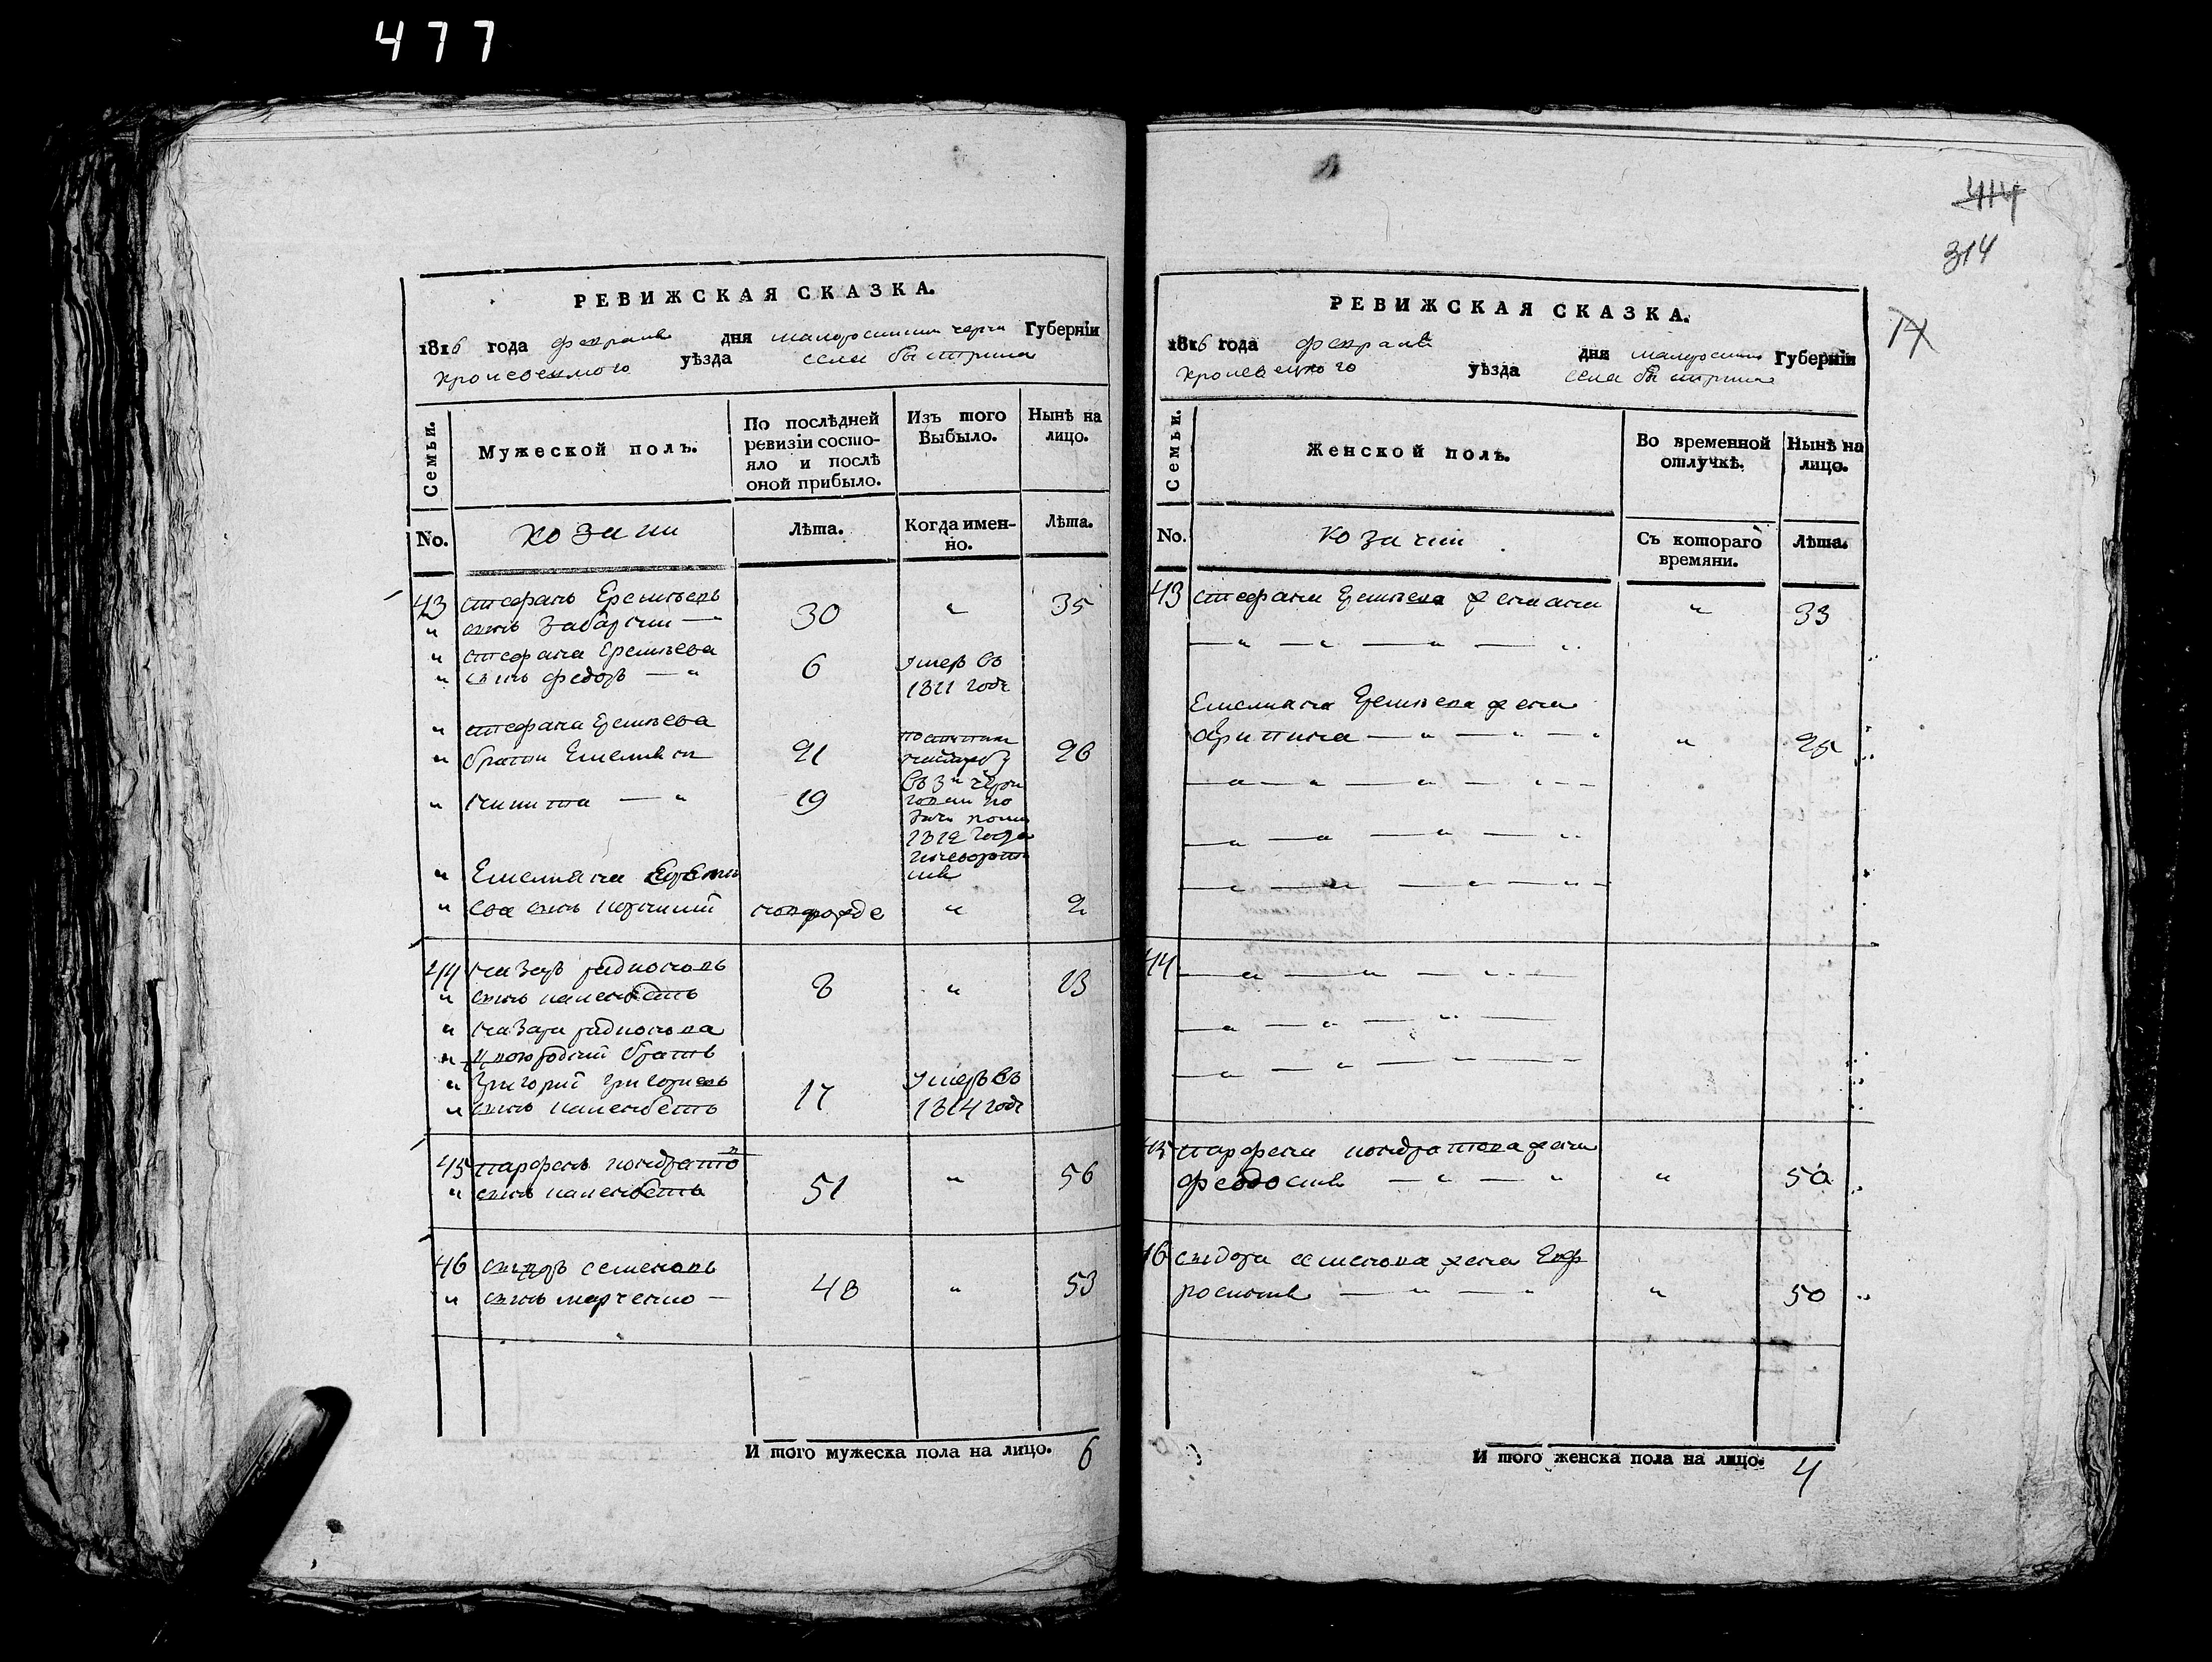 477
РЕВИЖСКАЯ СКАЗКА.
1816 года февраля дня малоросиской черни Губерніи
кролевецкого уѣзда села быстрика
Семьи.
Мужеской полъ.
По послѣдней ревизіи состо-
яло и послѣ
оной прибыло.
Изъ того
Выбыло.
Нынѣ на
лицо.
No.
козаки
Лѣта.
Когда имен-
но.
Лѣта.
43 стефанъ Еремѣевъ
" сынъ 30 " 35
" стефана Еремѣева
" сынъ федоръ — " 6 умеръ въ
1811 годе
" стефана Еремѣева
" братья Емелянъ 21 26
" никита — " 19
1812 года
" Емеляна Ереми
" ева сынъ новорожде " 2
44 назаръ радионовъ
" сынъ 8 " 13
" назара радионова
" двоюродний братъ
" григорий григориевъ умеръ въ
" сынъ 17 1814 годе
45 парфенъ кондрато
" сынъ 51 " 56
46 сидоръ семеновъ
" сынъ марченко — 48 " 53
И того мужеска пола на лицо. 6
414
314
РЕВИЖСКАЯ СКАЗКА.
14
1816 года февраля дня малоросиской Губерніи
кролевецкого уѣзда села быстрика
Семьи.
Женской полъ.
Во временной
отлучкѣ.
Нынѣ на
лицо.
No.
козачки
Съ котораго
времяни.
Лѣта.
43 стефана Еремѣева жена " 33
Емеляна Еремѣева жена
— " — " — " " 25
44
45 парфена кондратова жена
феодосия — " — " " 50
46 сидора семенова жена Евф
росиния — " — " " 50
И того женска пола на лицо. 4